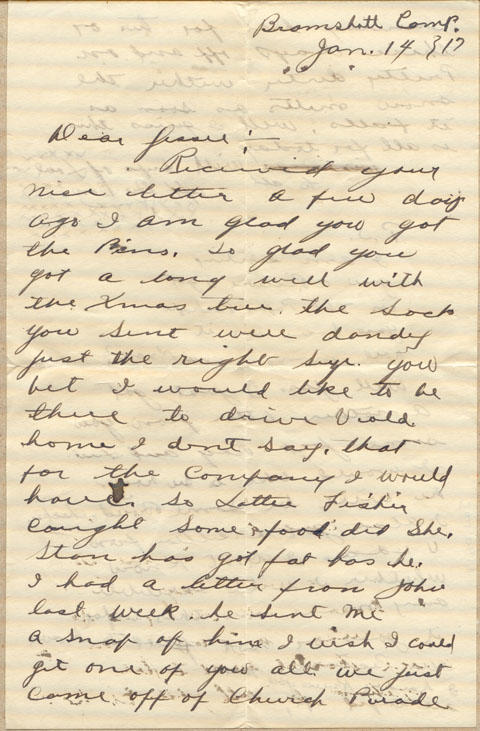 Bramshott Camp.
Jan. 14 / 17
Dear Jessie:—
Received your
nice letter a few days
ago I am glad you got
the Pins. so glad you
got a long well with
the Xmas tree. the Sock
you sent were dandy
just the right size. you
bet I would like to be
there to drive Viola
home I dont say. that
for the Company I would
have. so Lottie Fisher
caught some food did She.
Stan has got fat has he.
I had a letter from John
last week. he sent me
a snap of him I wish I could
get one of you all we just
came off of Church Parade